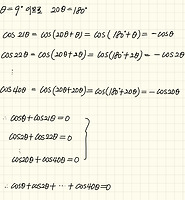 θ=9° 이면, 20θ=180°
cos 21θ = cos(20θ+θ) = cos(180°+θ) = -cosθ
cos22θ = cos(20θ+2θ) = cos(180°+2θ) = -cos2θ
⋮
cos40θ = cos(20θ+20θ) = cos(180°+20θ) = -cos20θ
∴ cosθ+cos21θ = 0
cos2θ+cos22θ = 0
⋮
cos20θ+cos40θ = 0
∴ cosθ+cos2θ+ ⋯ +cos40θ=0